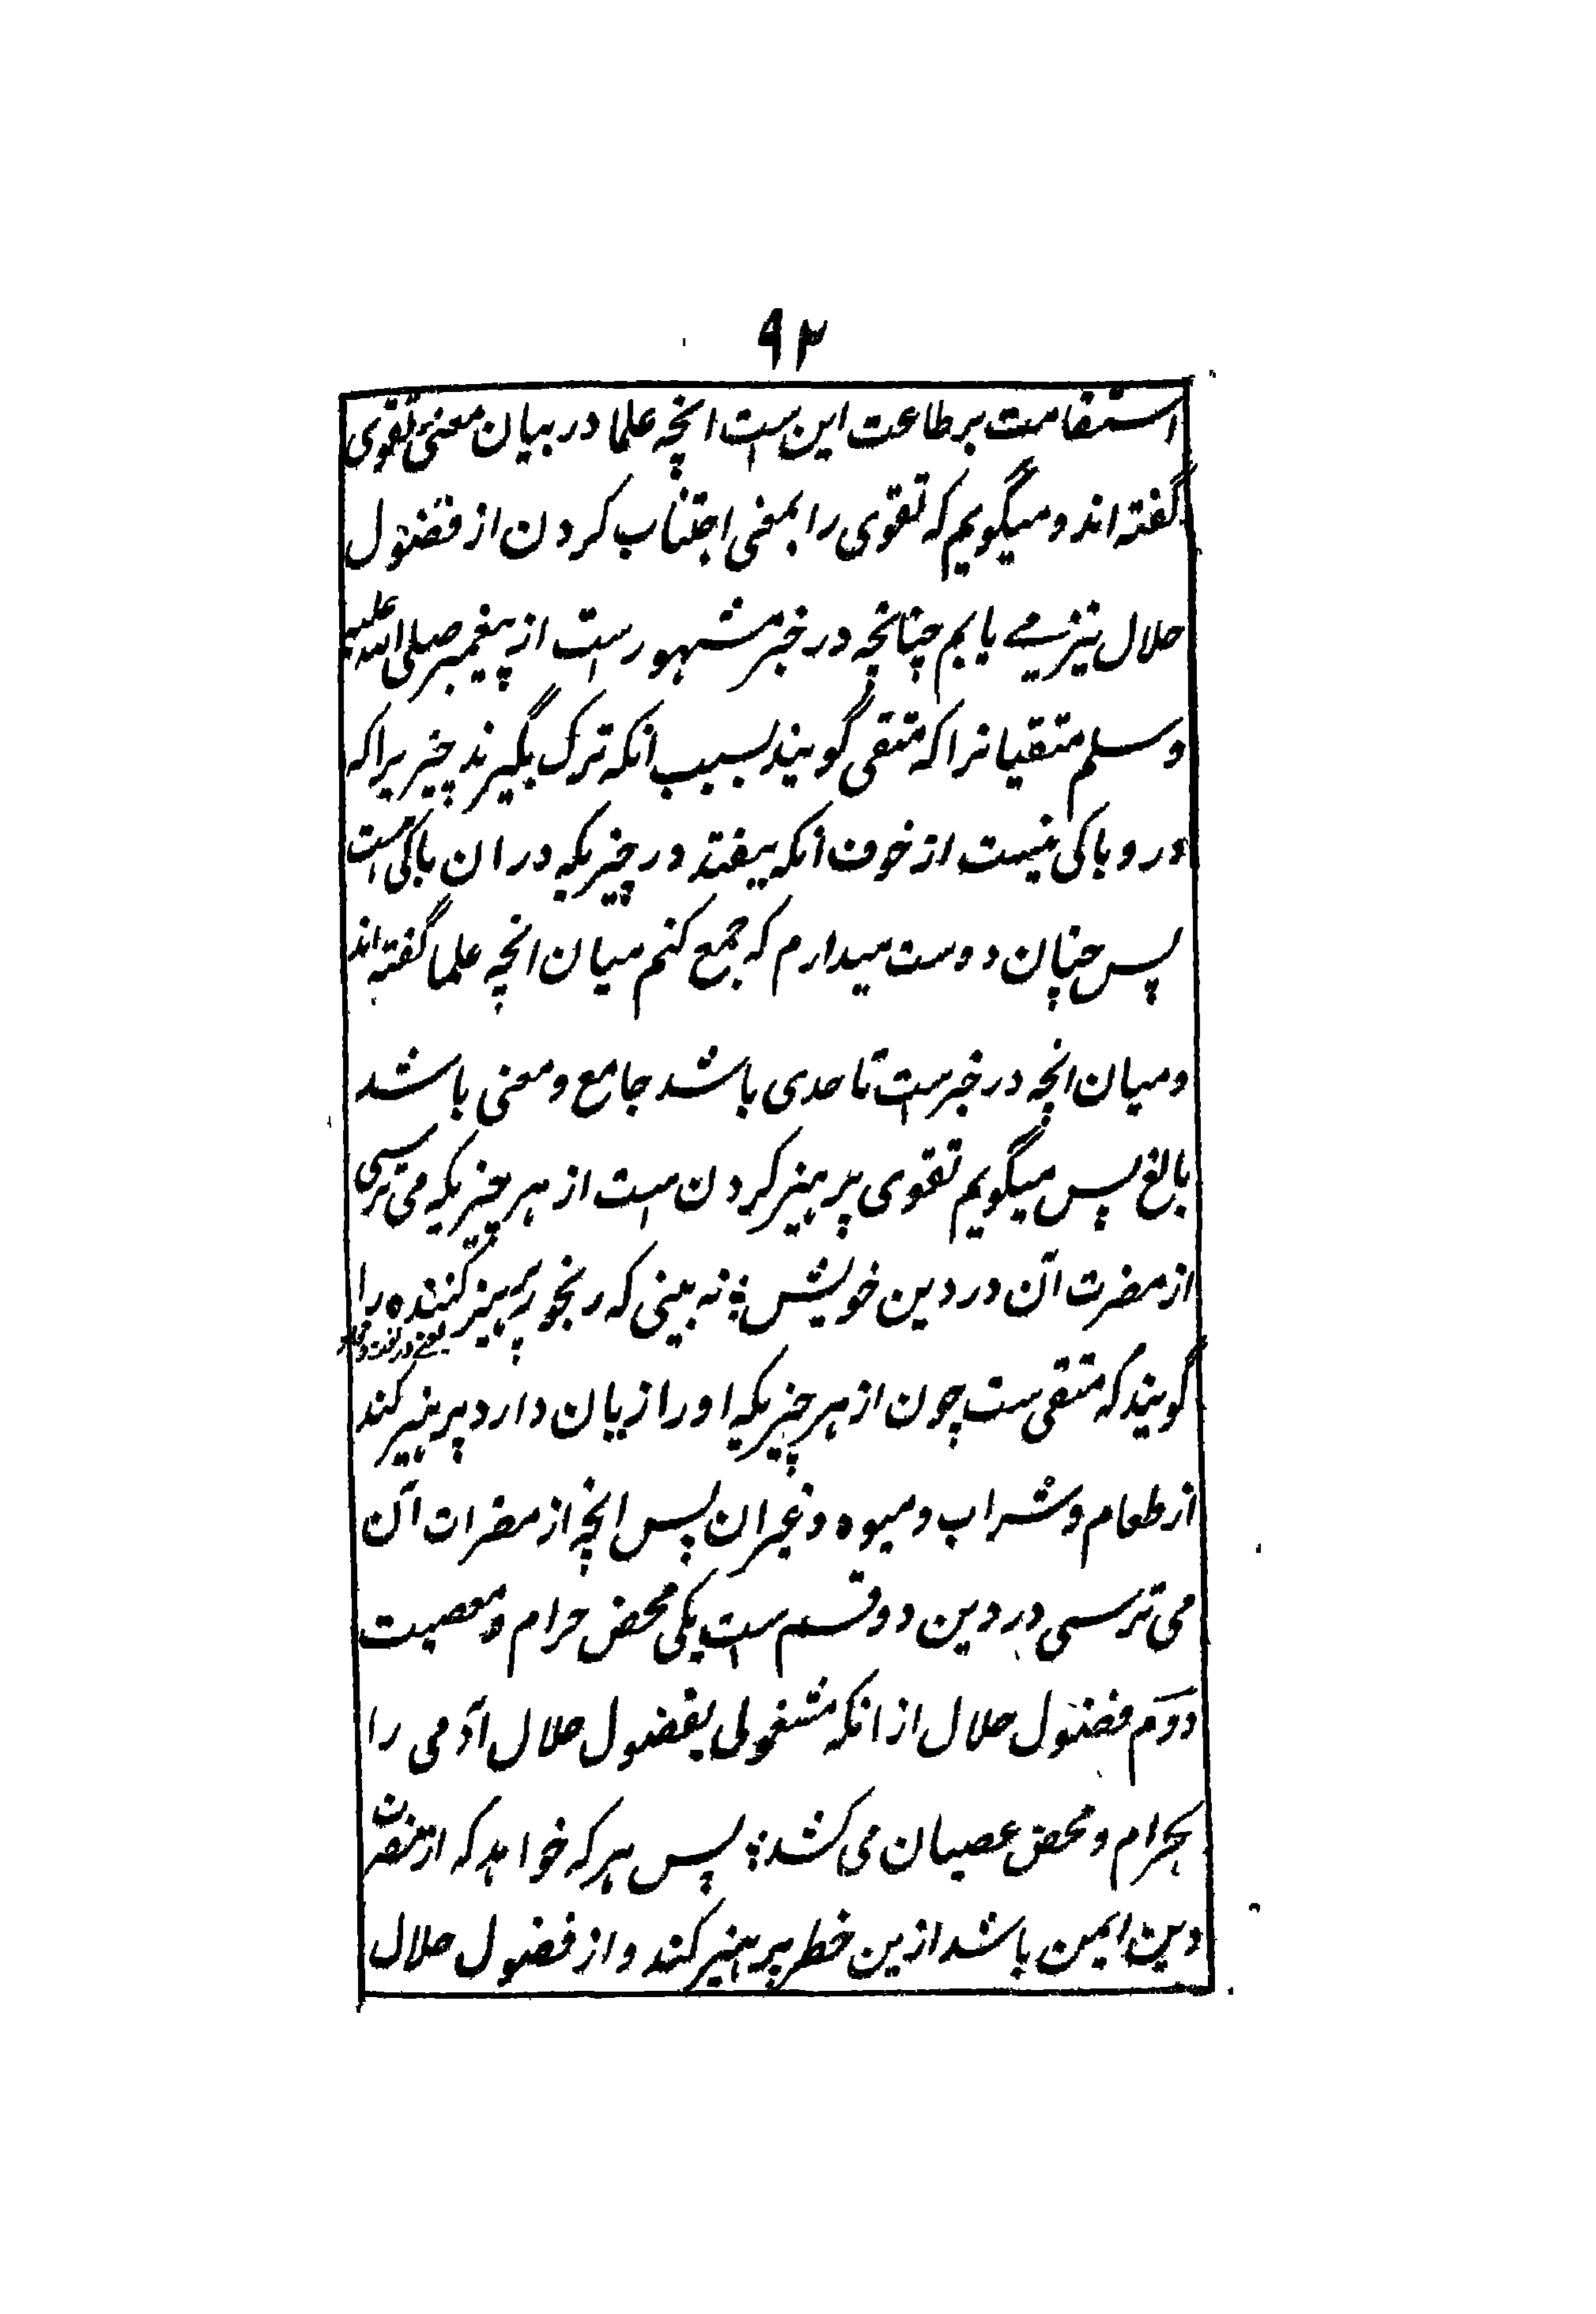 ۹۲
استقامت بر طاعت این ست انچه علما در بیان معنیٔ تقوی
گفته اند و میگویم که تقوی را بمعنی اجتناب کردن از فضول
حلال نیز مے یابم چنانچه در خبر مشهورست از پیغمبر صلی الله علیه
و سلم متقیانرا که متقی گویند بسبب انکه ترک بگیرند چیزیرا که
درو باکی نیست از خوف انکه بیفتد در چیزیکه در ان باکی ست
پس چنان دوست میدارم که جمع کنم میان انچه علما گفته اند
و میان انچه در خبرست تا حدی باشد جامع و معنی باشد
بالغ پس میگویم تقوی پرهیز کردن ست از هر چیزیکه می ترسی
از مضرت آن در دین خویش ؛ نه بینی که رنجور پرهیز کننده را
گویند که متقی ست چون از هر چیزیکه اورا زیان دارد پرهیز کند
از طعام و شراب و میوه و غیران پس انچه از مضرات آن
می ترسی در دین دو قسم ست یکی محض حرام و معصیت
دوم فضول حلال از انکه مشغولی بفضول حلال آدمی را
بحرام و محض عصیان می کشد ؛ پس هر که خواهد که از مضرت
دین ایمن باشد ازین خطر پرهیز کند و از فضول حلال